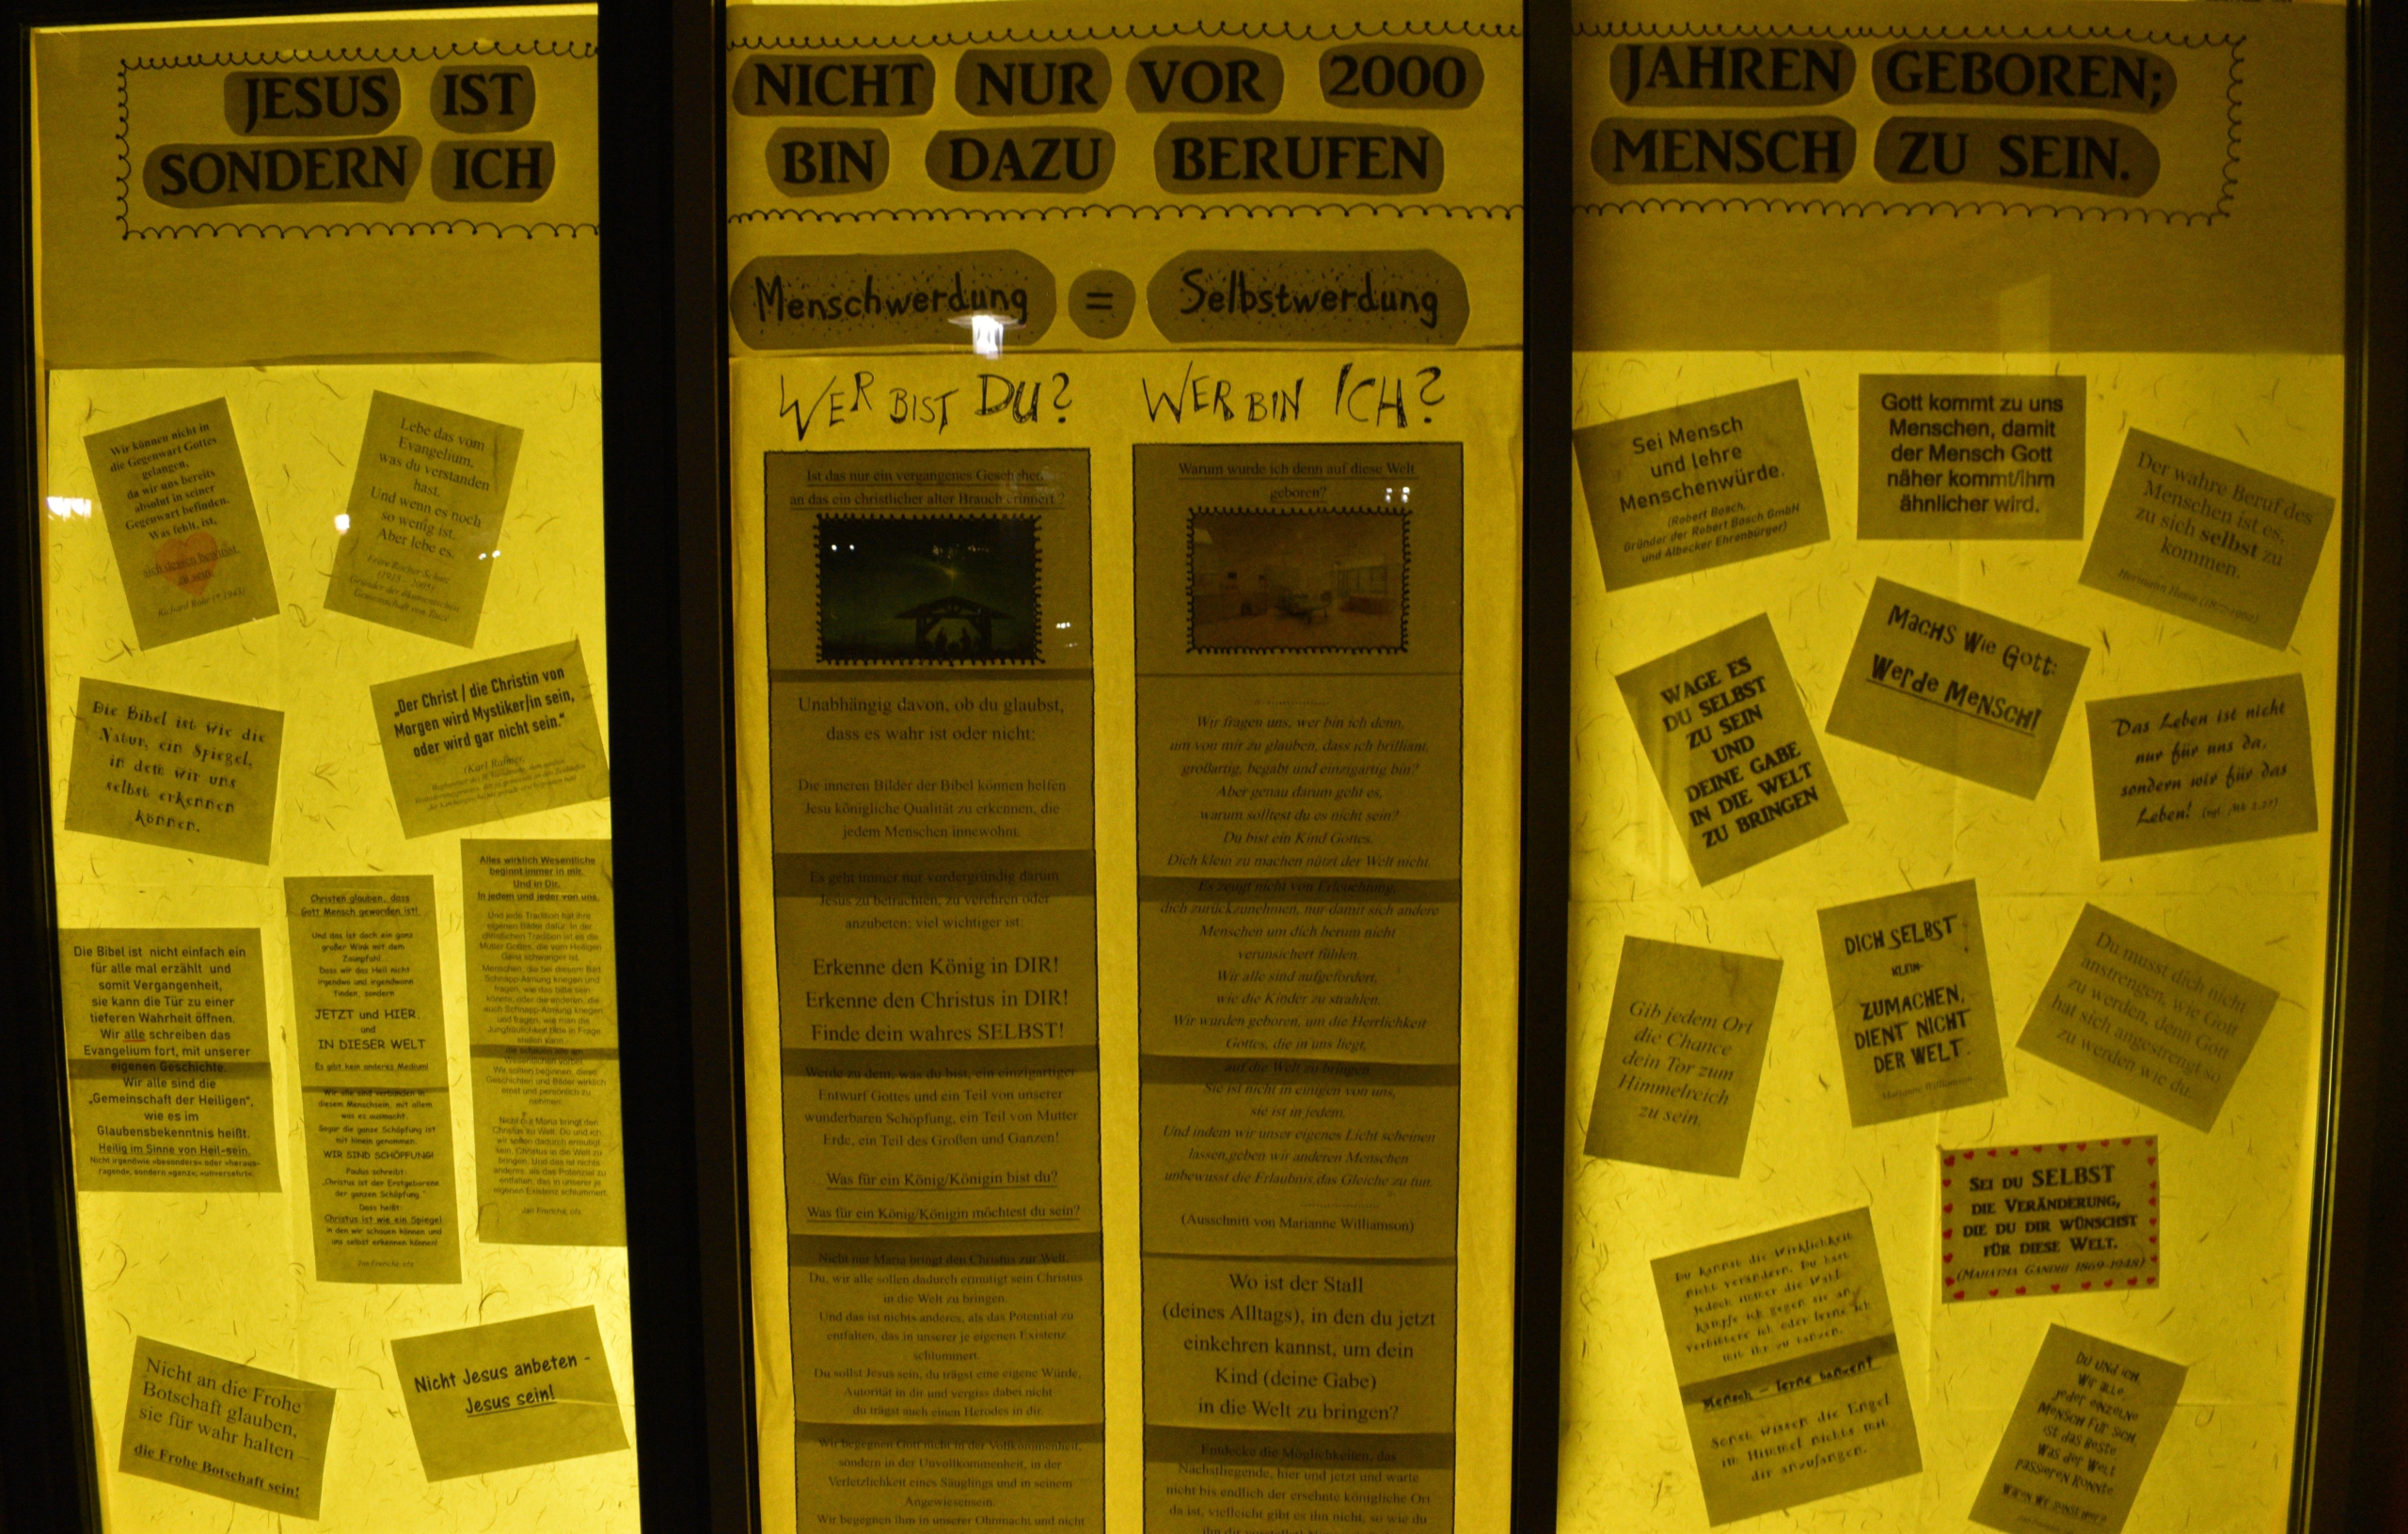 JESUS IST NICHT NUR VOR 2000 JAHREN GEBOREN;
SONDERN ICH BIN DAZU BERUFEN MENSCH ZU SEIN.
Menschwerdung = Selbstwerdung
Wir können nicht in
die Gegenwart Gottes
gelangen,
da wir uns bereits
absolut in seiner
Gegenwart befinden.
Was fehlt, ist,
sich dessen bewusst
zu sein.
Richard Rohr (* 1943)
Lebe das vom
Evangelium,
was du verstanden
hast.
Und wenn es noch
so wenig ist.
Aber lebe es.
Gründer der ökumenischen
Die Bibel ist wie die
Natur, ein Spiegel,
in dem wir uns
selbst erkennen
können.
„Der Christ / die Christin von
Morgen wird Mystiker/in sein,
oder wird gar nicht sein."
(Karl Rahner,
Die Bibel ist nicht einfach ein
für alle mal erzählt und
somit Vergangenheit,
sie kann die Tür zu einer
tieferen Wahrheit öffnen.
Wir alle schreiben das
Evangelium fort, mit unserer
eigenen Geschichte.
Wir alle sind die
„Gemeinschaft der Heiligen",
wie es im
Glaubensbekenntnis heißt.
Heilig im Sinne von Heil-sein.
Nicht irgendwie »besonders« oder »heraus-
ragend«, sondern »ganz«, »unversehrt«.
Christen glauben, dass
Gott Mensch geworden ist!
Und das ist doch ein ganz
großer Wink mit dem
Zaunpfahl
Dass wir das Heil nicht
irgendwo und irgendwann
finden, sondern
JETZT und HIER.
und
IN DIESER WELT
Es gibt kein anderes Medium!
Wir alle sind verbunden in
diesem Menschsein, mit allem
was es ausmacht.
Sogar die ganze Schöpfung ist
mit hinein genommen.
WIR SIND SCHÖPFUNG!
Paulus schreibt:
„Christus ist der Erstgeborene
der ganzen Schöpfung."
Dass heißt:
Christus ist wie ein Spiegel
in den wir schauen können und
uns selbst erkennen können!
Jan Frerichs, ofs
Alles wirklich Wesentliche
beginnt immer in mir.
Und in Dir.
In jedem und jeder von uns.
Und jede Tradition hat ihre
eigenen Bilder dafür. In der
christlichen Tradition ist es die
Mutter Gottes, die vom Heiligen
Geist schwanger ist.
Menschen, die bei diesem Bild
Schnapp-Atmung kriegen und
fragen, wie das bitte sein
könnte, oder die anderen, die
auch Schnapp-Atmung kriegen
und fragen, wie man die
Jungfräulichkeit bitte in Frage
stellen kann -
die schauen alle am
Wesentlichen vorbei.
Wir sollten beginnen, diese
Geschichten und Bilder wirklich
ernst und persönlich zu
nehmen.
Nicht nur Maria bringt den
Christus zu Welt. Du und ich,
wir sollen dadurch ermutigt
sein, Christus in die Welt zu
bringen. Und das ist nichts
anderes, als das Potenzial zu
entfalten, das in unserer je
eigenen Existenz schlummert.
Jan Frerichs, ofs
Nicht an die Frohe
Botschaft glauben,
sie für wahr halten –
die Frohe Botschaft sein!
Nicht Jesus anbeten -
Jesus sein!
WER BIST DU?
Ist das nur ein vergangenes Geschehen,
an das ein christlicher alter Brauch erinnert ?
Unabhängig davon, ob du glaubst,
dass es wahr ist oder nicht:
Die inneren Bilder der Bibel können helfen
Jesu königliche Qualität zu erkennen, die
jedem Menschen innewohnt.
Es geht immer nur vordergründig darum
Jesus zu betrachten, zu verehren oder
anzubeten; viel wichtiger ist
Erkenne den König in DIR!
Erkenne den Christus in DIR!
Finde dein wahres SELBST!
Werde zu dem, was du bist, ein einzigartiger
Entwurf Gottes und ein Teil von unserer
wunderbaren Schöpfung, ein Teil von Mutter
Erde, ein Teil des Großen und Ganzen!
Was für ein König/Königin bist du?
Was für ein König/Königin möchtest du sein?
Nicht nur Maria bringt den Christus zur Welt.
Du, wir alle sollen dadurch ermutigt sein Christus
in die Welt zu bringen.
Und das ist nichts anderes, als das Potential zu
entfalten, das in unserer je eigenen Existenz
schlummert.
Du sollst Jesus sein, du trägst eine eigene Würde,
Autorität in dir und vergiss dabei nicht
du trägst auch einen Herodes in dir.
Wir begegnen Gott nicht in der Vollkommenheit,
sondern in der Unvollkommenheit, in der
Verletzlichkeit eines Säuglings und in seinem
Angewiesensein.
Wir begegnen ihm in unserer Ohnmacht und nicht
WER BIN ICH?
Warum wurde ich denn auf diese Welt
geboren?
Wir fragen uns, wer bin ich denn,
um von mir zu glauben, dass ich brilliant,
großartig, begabt und einzigartig bin?
Aber genau darum geht es,
warum solltest du es nicht sein?
Du bist ein Kind Gottes.
Dich klein zu machen nützt der Welt nicht.
Es zeugt nicht von Erleuchtung,
dich zurückzunehmen, nur damit sich andere
Menschen um dich herum nicht
verunsichert fühlen.
Wir alle sind aufgefordert,
wie die Kinder zu strahlen.
Wir wurden geboren, um die Herrlichkeit
Gottes, die in uns liegt,
auf die Welt zu bringen.
Sie ist nicht in einigen von uns,
sie ist in jedem.
Und indem wir unser eigenes Licht scheinen
lassen,geben wir anderen Menschen
unbewusst die Erlaubnis,das Gleiche zu tun.
(Ausschnitt von Marianne Williamson)
Wo ist der Stall
(deines Alltags), in den du jetzt
einkehren kannst, um dein
Kind (deine Gabe)
in die Welt zu bringen?
Entdecke die Möglichkeiten, das
Nächstliegende, hier und jetzt und warte
nicht bis endlich der ersehnte königliche Ort
da ist, vielleicht gibt es ihn nicht, so wie du
Sei Mensch
und lehre
Menschenwürde.
(Robert Bosch,
Gründer der Robert Bosch GmbH
und Albecker Ehrenbürger)
Gott kommt zu uns
Menschen, damit
der Mensch Gott
näher kommt/ihm
ähnlicher wird.
Der wahre Beruf des
Menschen ist es,
zu sich selbst zu
kommen.
Hermann Hesse (1877-1962)
WAGE ES
DU SELBST
ZU SEIN
UND
DEINE GABE
IN DIE WELT
ZU BRINGEN
Machs wie Gott:
Werde Mensch!
Das Leben ist nicht
nur für uns da,
sondern wir für das
Leben!
Gib jedem Ort
die Chance
dein Tor zum
Himmelreich
zu sein.
DICH SELBST
KLEIN-
ZUMACHEN,
DIENT NICHT
DER WELT.
Marianne Williamson
Du musst dich nicht
anstrengen, wie Gott
zu werden, denn Gott
hat sich angestrengt so
zu werden wie du.
SEI DU SELBST
DIE VERÄNDERUNG,
DIE DU DIR WÜNSCHST
FÜR DIESE WELT.
(MAHATMA GANDHI 1869-1948)
Du kannst die Wirklichkeit
nicht verändern. Du hast
jedoch immer die Wahl:
kämpfe ich gegen sie an,
verbittere ich oder lerne ich
mit ihr zu tanzen.
Mensch – lerne tanzen!
Sonst wissen die Engel
im Himmel nichts mit
dir anzufangen.
Du und ich,
wir alle,
jeder einzelne
Mensch für sich,
ist das Beste
was der Welt
passieren konnte.